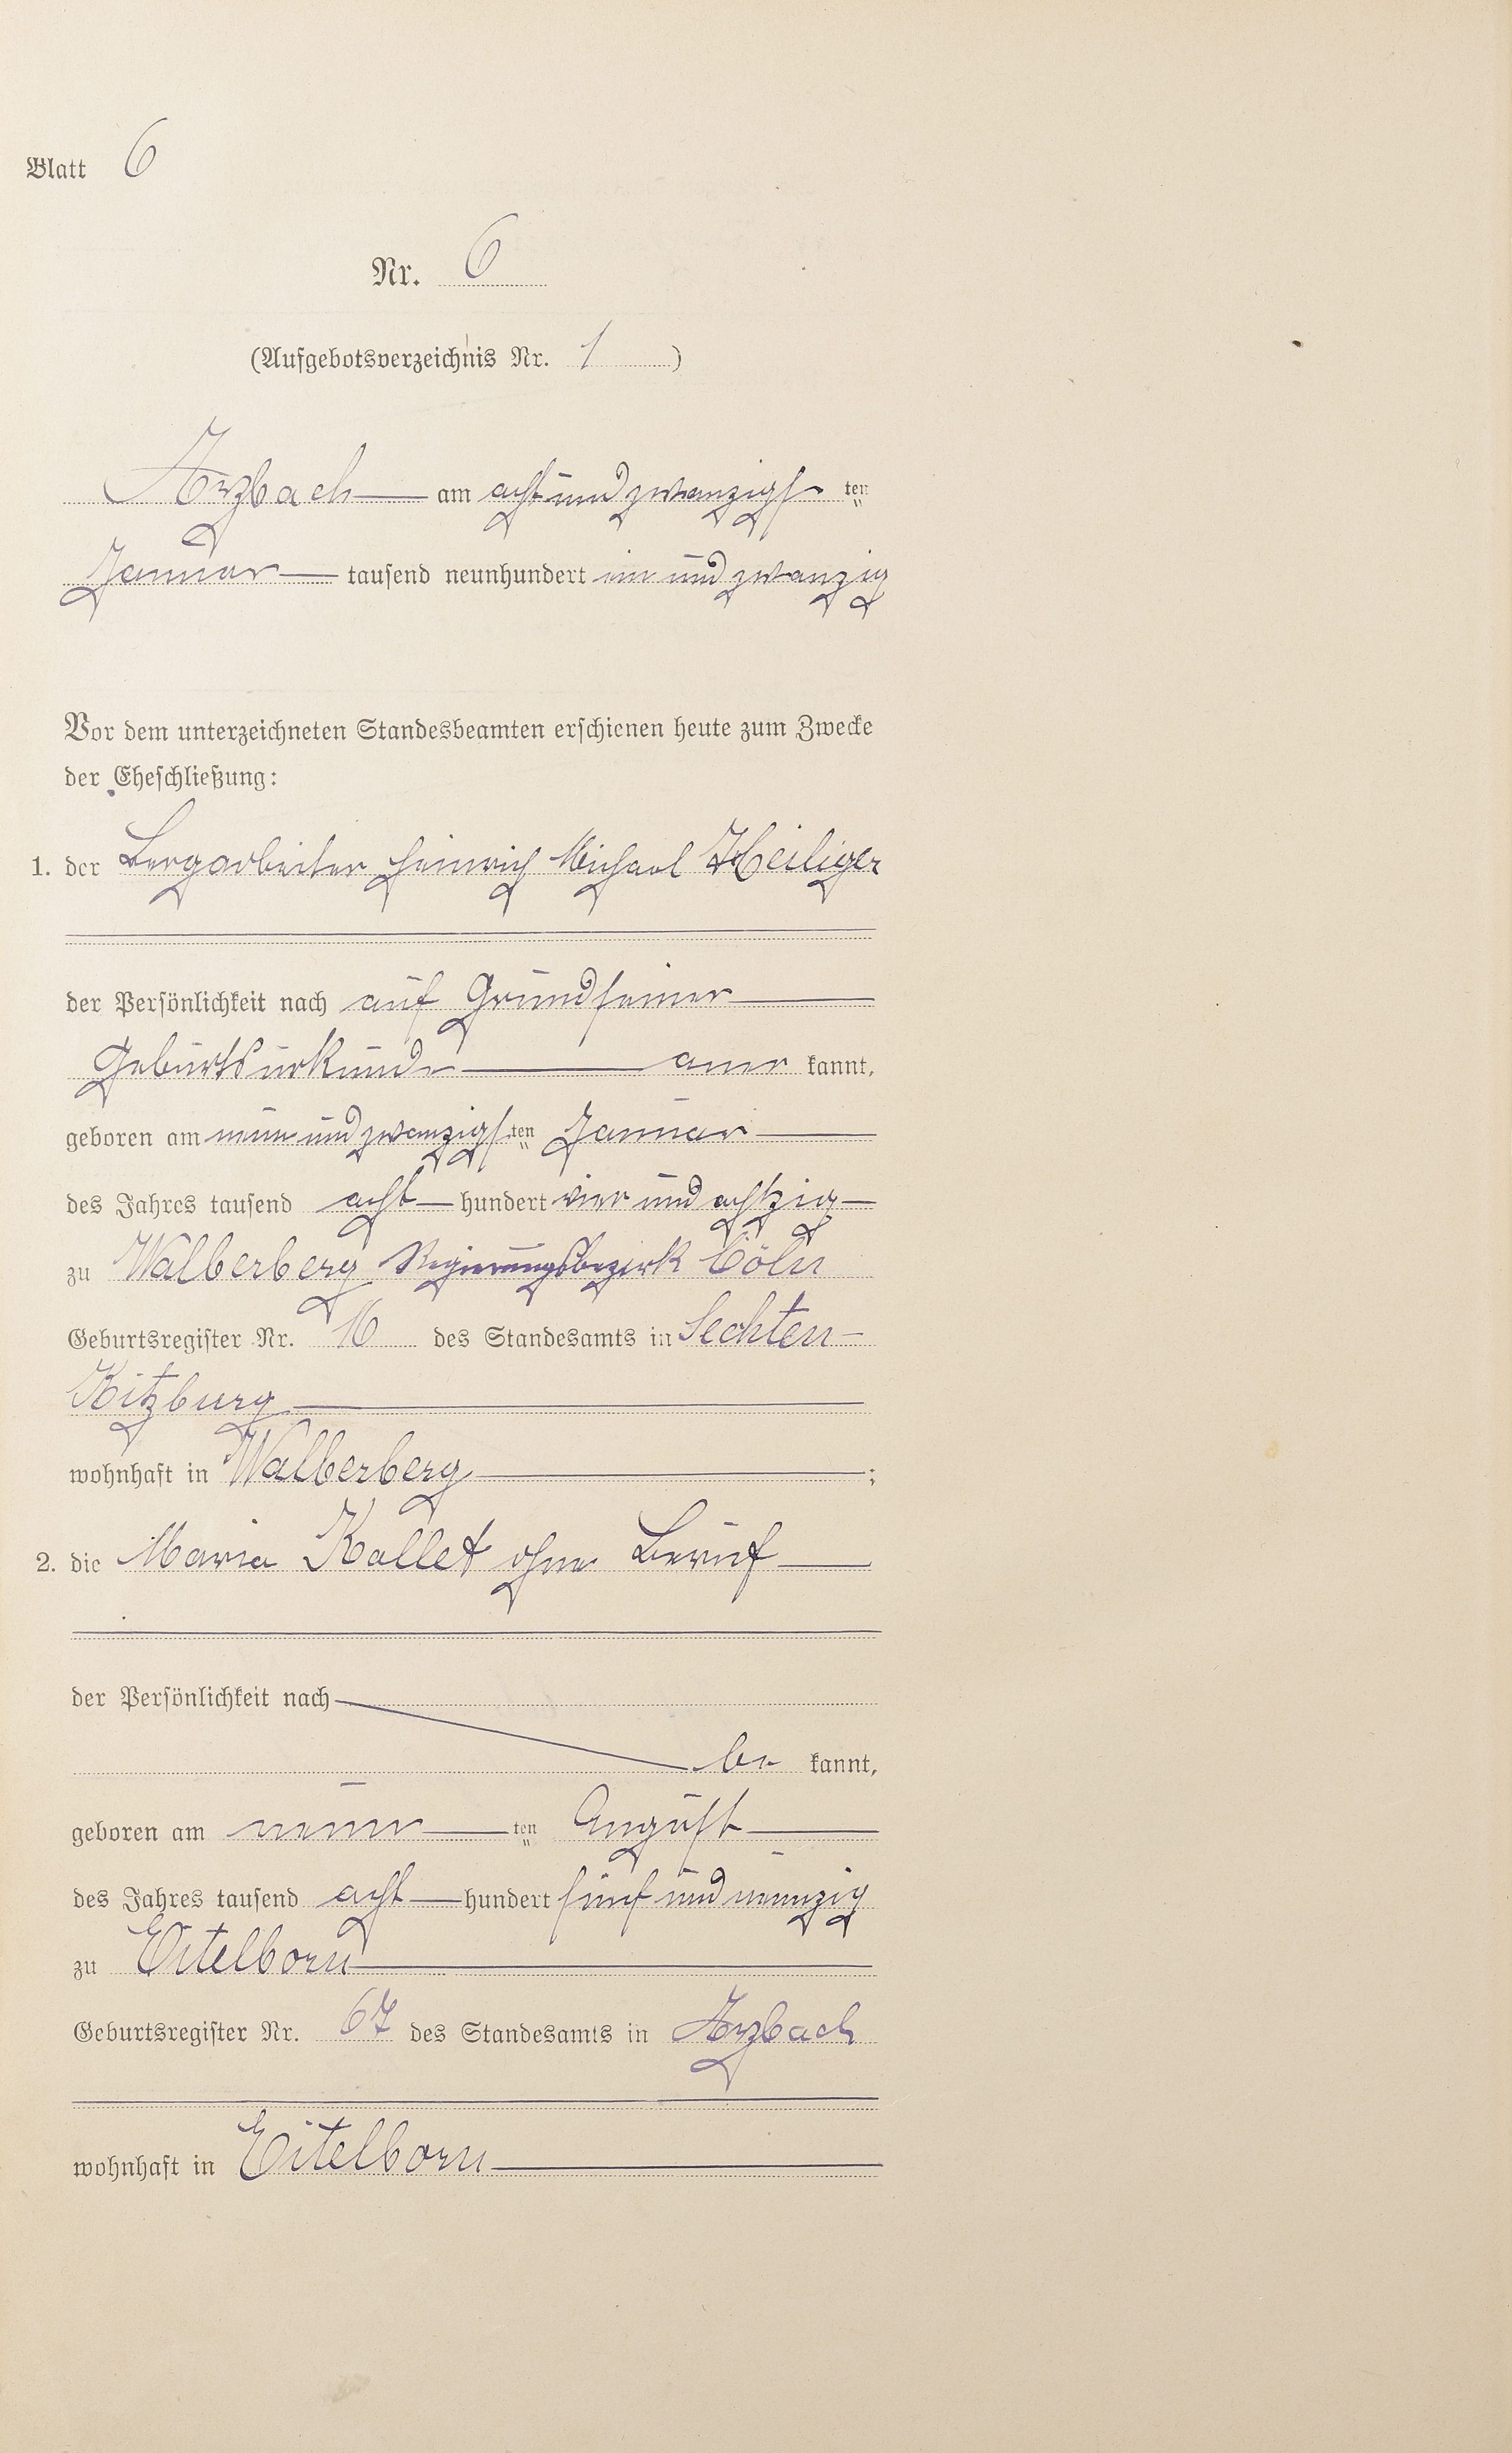 Blatt 6
Nr. 6
(Aufgebotsverzeichnis Nr. 1)
Arzbach am acht und zwanzigsten
Januar tausend neunhundert ein und zwanzig
Vor dem unterzeichneten Standesbeamten erschienen heute zum Zwecke
der Eheschließung:
1. der Bergarbeiter Heinrich Michael Heiliger
der Persönlichkeit nach auf Grund seiner
Geburtsurkunde anerkannt,
geboren am neun und zwanzigsten Januar
des Jahres tausend acht hundert vier und achtzig
zu Walberberg Regierungsbezirk Cöln
Geburtsregister Nr. 16 des Standesamts in Sechten-
Kitzburg
wohnhaft in Walberberg;
2. die Maria Kollet ohne Beruf
der Persönlichkeit nach
bekannt,
geboren am neunten August
des Jahres tausend acht hundert fünf und neunzig
zu Eitelborn
Geburtsregister Nr. 67 des Standesamts in Arzbach
wohnhaft in Eitelborn